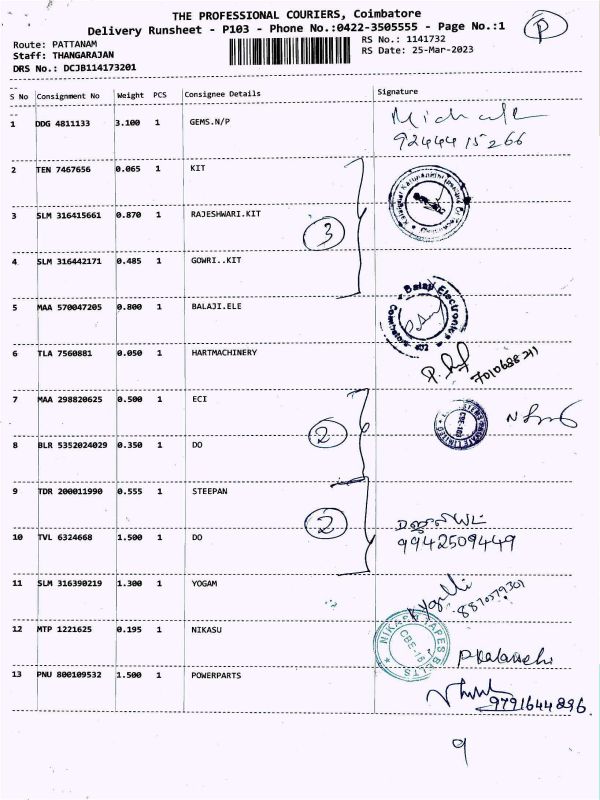 THE PROFESSIONAL COURIERS, Coimbatore
Delivery Runsheet - P103 - Phone No.:0422-3505555 - Page No.:1
P
Route: PATTANAM
RS No.: 1141732
Staff: THANGARAJAN
RS Date: 25-Mar-2023
DRS No.: DCJB114173201
S No Consignment No Weight PCS Consignee Details Signature
1 DDG 4811133 3.100 1 GEMS.N/P
92444 15266
2 TEN 7467656 0.065 1 KIT
3 SLM 316415661 0.870 1 RAJESHWARI.KIT
3
4 SLM 316442171 0.485 1 GOWRI..KIT
5 MAA 570047205 0.800 1 BALAJI.ELE
Balaji Electronics
Coimbatore 402
6 TLA 7560881 0.050 1 HARTMACHINERY
7010688211
7 MAA 298820625 0.500 1 ECI
2
8 BLR 5352024029 0.350 1 DO
9 TDR 200011990 0.555 1 STEEPAN
2
10 TVL 6324668 1.500 1 DO
9942509449
11 SLM 316390219 1.300 1 YOGAM
12 MTP 1221625 0.195 1 NIKASU
NIKASU TAPES BELTS
CBE-18
13 PNU 800109532 1.500 1 POWERPARTS
9791644896
9